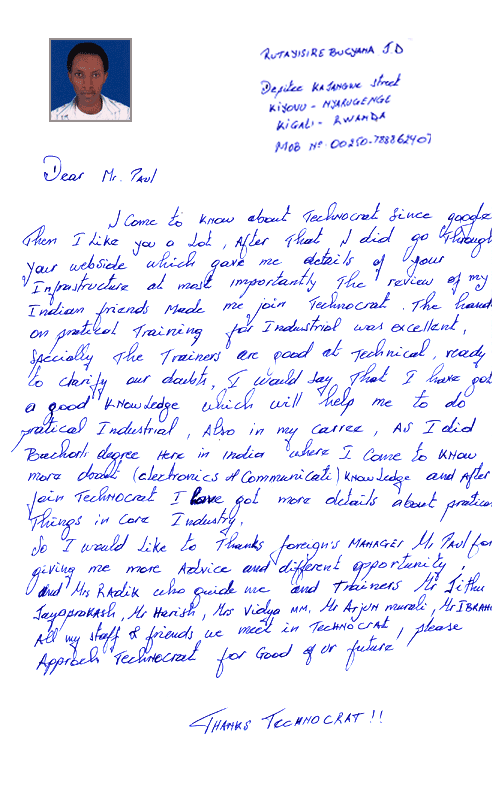 RUTAYISIRE BUGYAMA J.D
Depitee KAJANGWE Street
KIYOVU - NYARUGENGE
KIGALI - RWANDA
MOB No 00250-788862401
Dear Mr. PAUL
I Come to Know about Technocrat Since google
Then I Like you a Lot, After That I did go Through
your webside which gave me details of your
Infrastructure at most importantly The review of my
Indian friends Made me join Technocrat. The hand
on pratical Training for Industrial was excellent,
Specially The Trainers are good at Technical, ready
to clarify our doubts, I would say That I have got
a good Knowledge which will help me to do
pratical Industrial, Also in my carree, As I did
Bachorl degree Here in India where I Come to Know
more about (electronics & Communicati) Knowledge and After
join Technocrat I have got more details about pratical
Things in Core Industry.
So I would Like to Thanks foreign's MANAGER Mr PAUL for
giving me more Advice and different opportunity,
and Mrs RADIK who guide me and Trainers Mr Jithu
Jayaprakash, Mr Harish, Mrs Vidya MM, Mr Arjun murali, Mr IBRAHI
All my staff & friends we meet in TECHNOCRAT, please
Approch Technocrat for Good of ur future
THANKS TECHNOCRAT !!